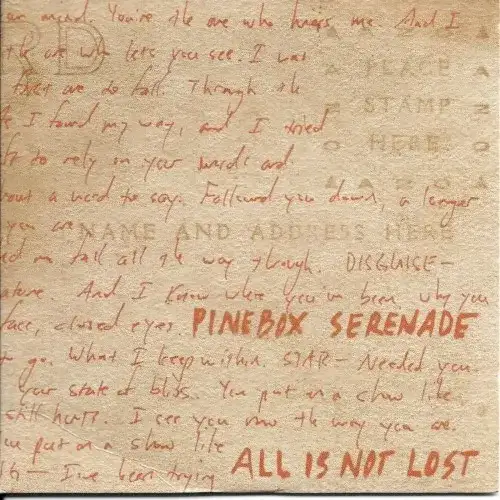 mind. You're the one who me. And I
RD
the one who lets you see. I was
PLACE
they we do fall. Through the
STAMP
I found my way, and I tried
HERE
to rely on your words and
out a word to say. Followed you down, a longer
you are
NAME AND ADDRESS HERE
fall all the way through. DISGUISE —
ature. And I know where you've been, why you
face, closed eyes.
PINEBOX SERENADE
to go. What I keep within. STAR — Needed you.
Your state of bliss. You put on a show like
still hurt. I see you now the way you are.
put on a show like
— I've been trying
ALL IS NOT LOST